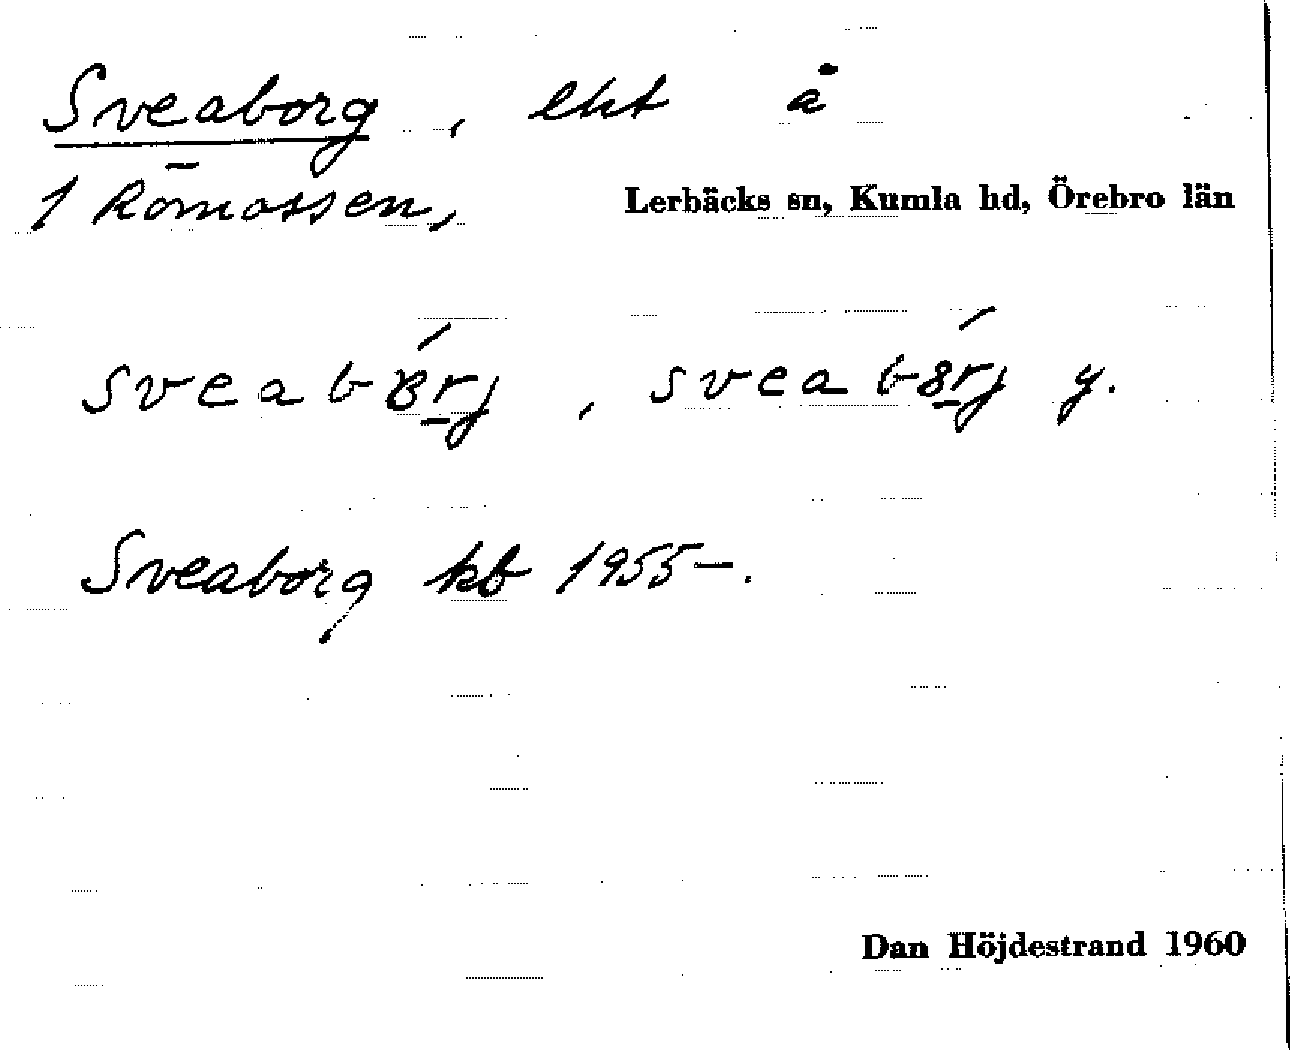 Sveaborg, lht å
1 Römossen,
Lerbäcks sn, Kumla hd, Örebro län
sveabȣrj, sveab8rj y.
Sveaborg kb 1955–.
Dan Höjdestrand 1960